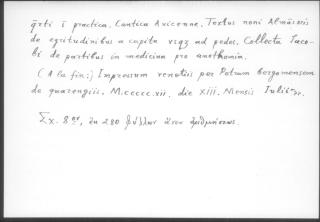 q̄rti ī practica. Cantica Avicenne. Textus noni Almāsoris
de egritudinibus a capite vsqz ad pedes. Collecta Jaco-
bi de partibus in medicina pro anathomia.
(A la fin:) Impressum venetiis per Petrum bergomensem
de quarengiis. M.ccccc.xii. die XIII. Mensis Julii.
Σχ. 8ον, ἐκ 280 φύλλων ἄνευ ἀριθμήσεως.